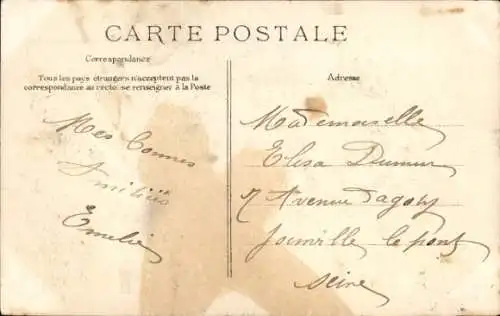 CARTE POSTALE
Correspondance
Tous les pays étrangers n'acceptent pas la
correspondance au recto, se renseigner à la Poste
Adresse
Mes bonnes
Amitiés
Emelie
Mademoiselle
Elisa Dumur
7 Avenue
Joinville le pont
Seine